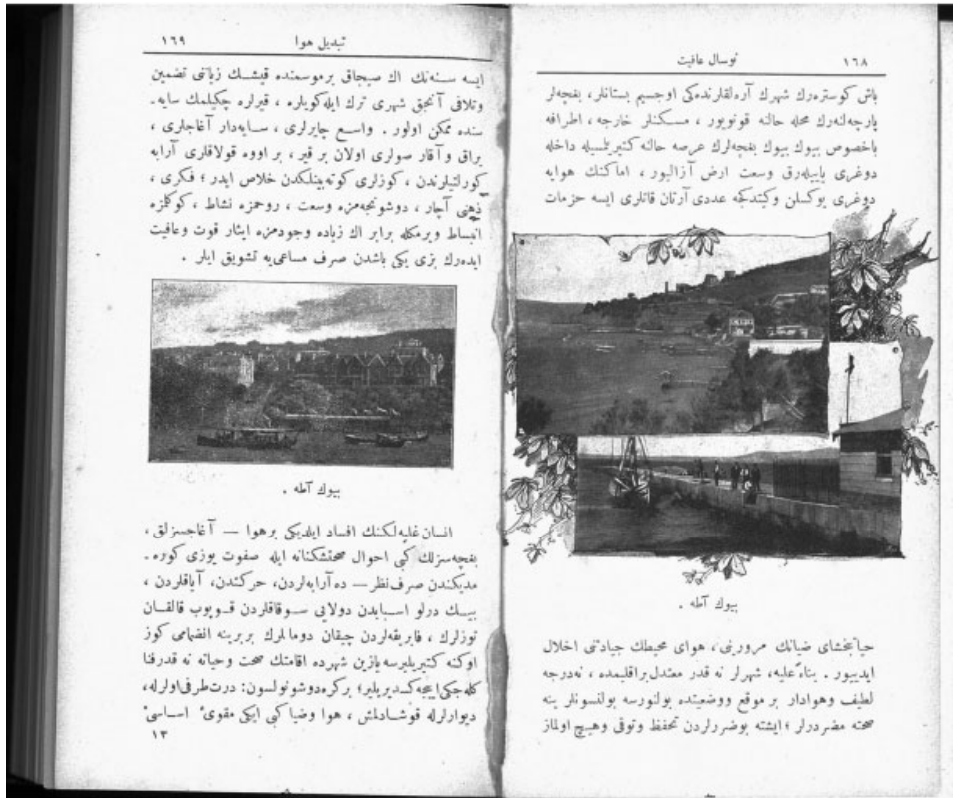 ١٦٨
نوسال عافيت
باش كوستره‌رك شهرك آره‌لقلرنده‌كى اوجسيم بستانلر، بغچه‌لر
پارچه‌لنه‌رك محله حالنه قونويور، مسكنلر خارجه، اطرافه
باخصوص بيوك بيوك بغچه‌لرك عرصه حالنه كتيريلمسيله داخله
دوغرى ياييله‌رق وسعت ارض آزاليور، اماكنك هوايه
دوغرى يوكسلن وكيتدكجه عددى آرتان قاتلرى ايسه حزمات
بيوك آطه .
حياتبخشاى ضيانك مرورينى، هواى محيطك جيادتنى اخلال
ايدييور . بناءً عليه، شهرلر نه قدر معتدل براقليمده ، نه‌درجه
لطيف وهوادار بر موقع ووضعيتده بولنورسه بولنسونلر ينه
صحته مضردرلر ؛ ايشته بوضررلردن تحفظ وتوقى وهيچ اولماز
تبديل هوا
١٦٩
ايسه سنه‌نك اك صيجاق برموسمنده قيشك زيانى تضمين
وتلافى آنجق شهرى ترك ايله‌كويلره ، قيرلره چكيلمك سايه‌ـ
سنده ممكن اولور . واسع چايرلرى ، سايه‌دار آغاجلرى ،
براق وآقار صولرى اولان بر قير ، بر اووه قولاقلرى آرابه
كورلتيلرندن ، كوزلرى كوته‌بينلكدن خلاص ايدر ؛ فكرى ،
ذهنى آچار ، دوشونجه‌مزه وسعت ، روحمزه نشاط ، كوكلمزه
انبساط ويرمكله برابر اك زياده وجودمزه ايثار قوت وعافيت
ايده‌رك بزى يكى باشدن صرف مساعى‌يه تشويق ايلر .
بيوك آطه .
انسان غلبه‌لكنك افساد ايلديكى برهوا — آغاجسزلق ،
بغچه‌سزلك كبى احوال صحتشكنانه ايله صفوت يوزى كوره‌ـ
مديكندن صرف نظر — ده آرابه‌لردن، حركتدن، آياقلردن ،
بيــك درلو اسبابدن دولايى ســوقاقلردن قــوپوب قالقــان
توزلرك ، فابريقه‌لردن چيقان دومانلرك بربرينه انضمامى كوز
اوكنه كتيريليرسه يازين شهرده اقامتك صحت وحياته نه قدرفنا
كله‌جكى اييجه كــديريلير؛ بركره‌دوشونولسون: درت‌طرفى‌اولرله،
ديوارلرله قوشادلمش ، هوا وضيا كبى ايكى مقوئ اساسئ
١٣